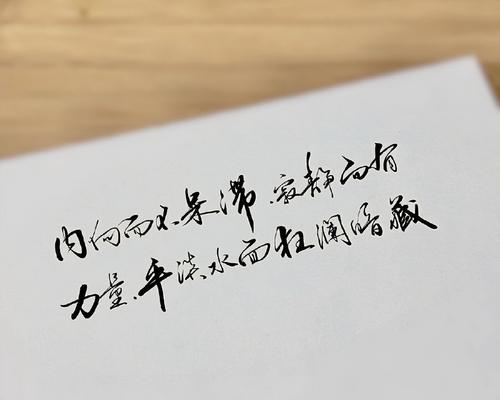 内向而不呆滞.寂静而有
力量.平淡水而狂澜暗藏